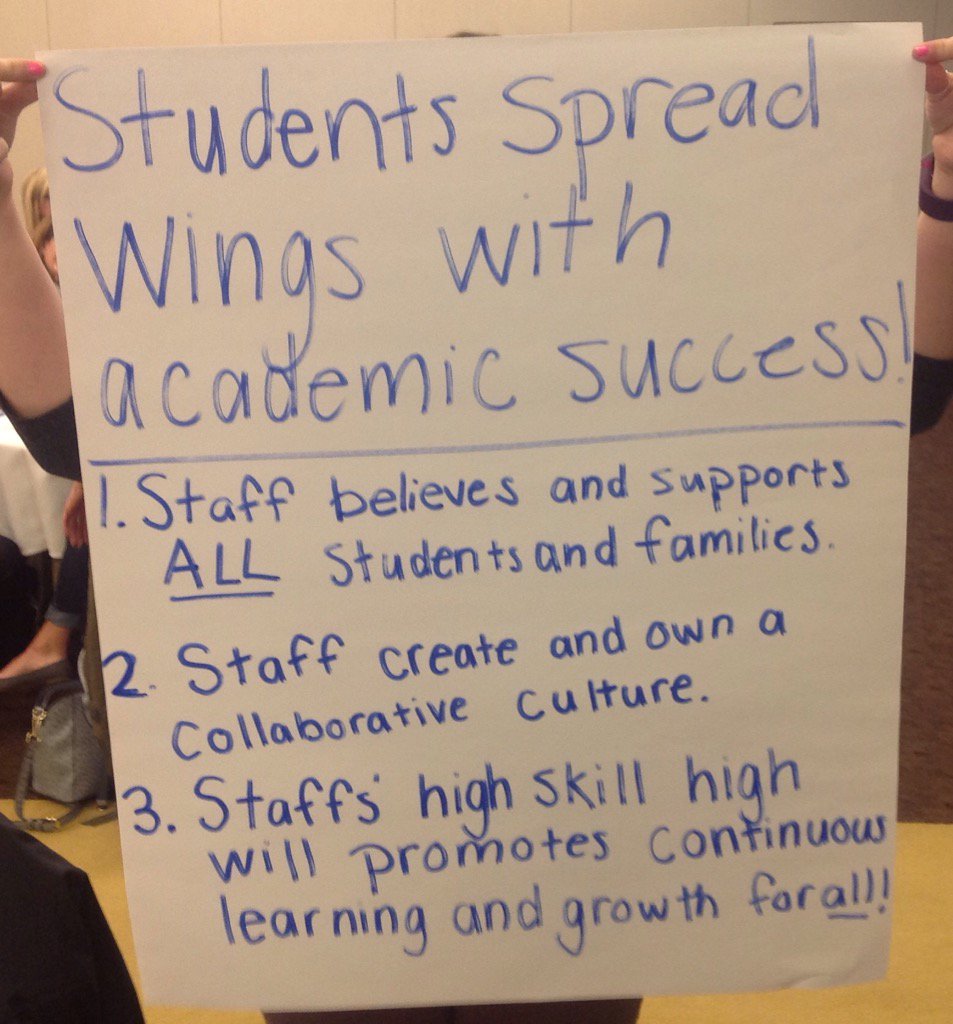 Students Spread
Wings with
academic success!
1. Staff believes and supports
ALL students and families.
2. Staff create and own a
collaborative culture.
3. Staffs' high skill high
will promotes continuous
learning and growth for all!